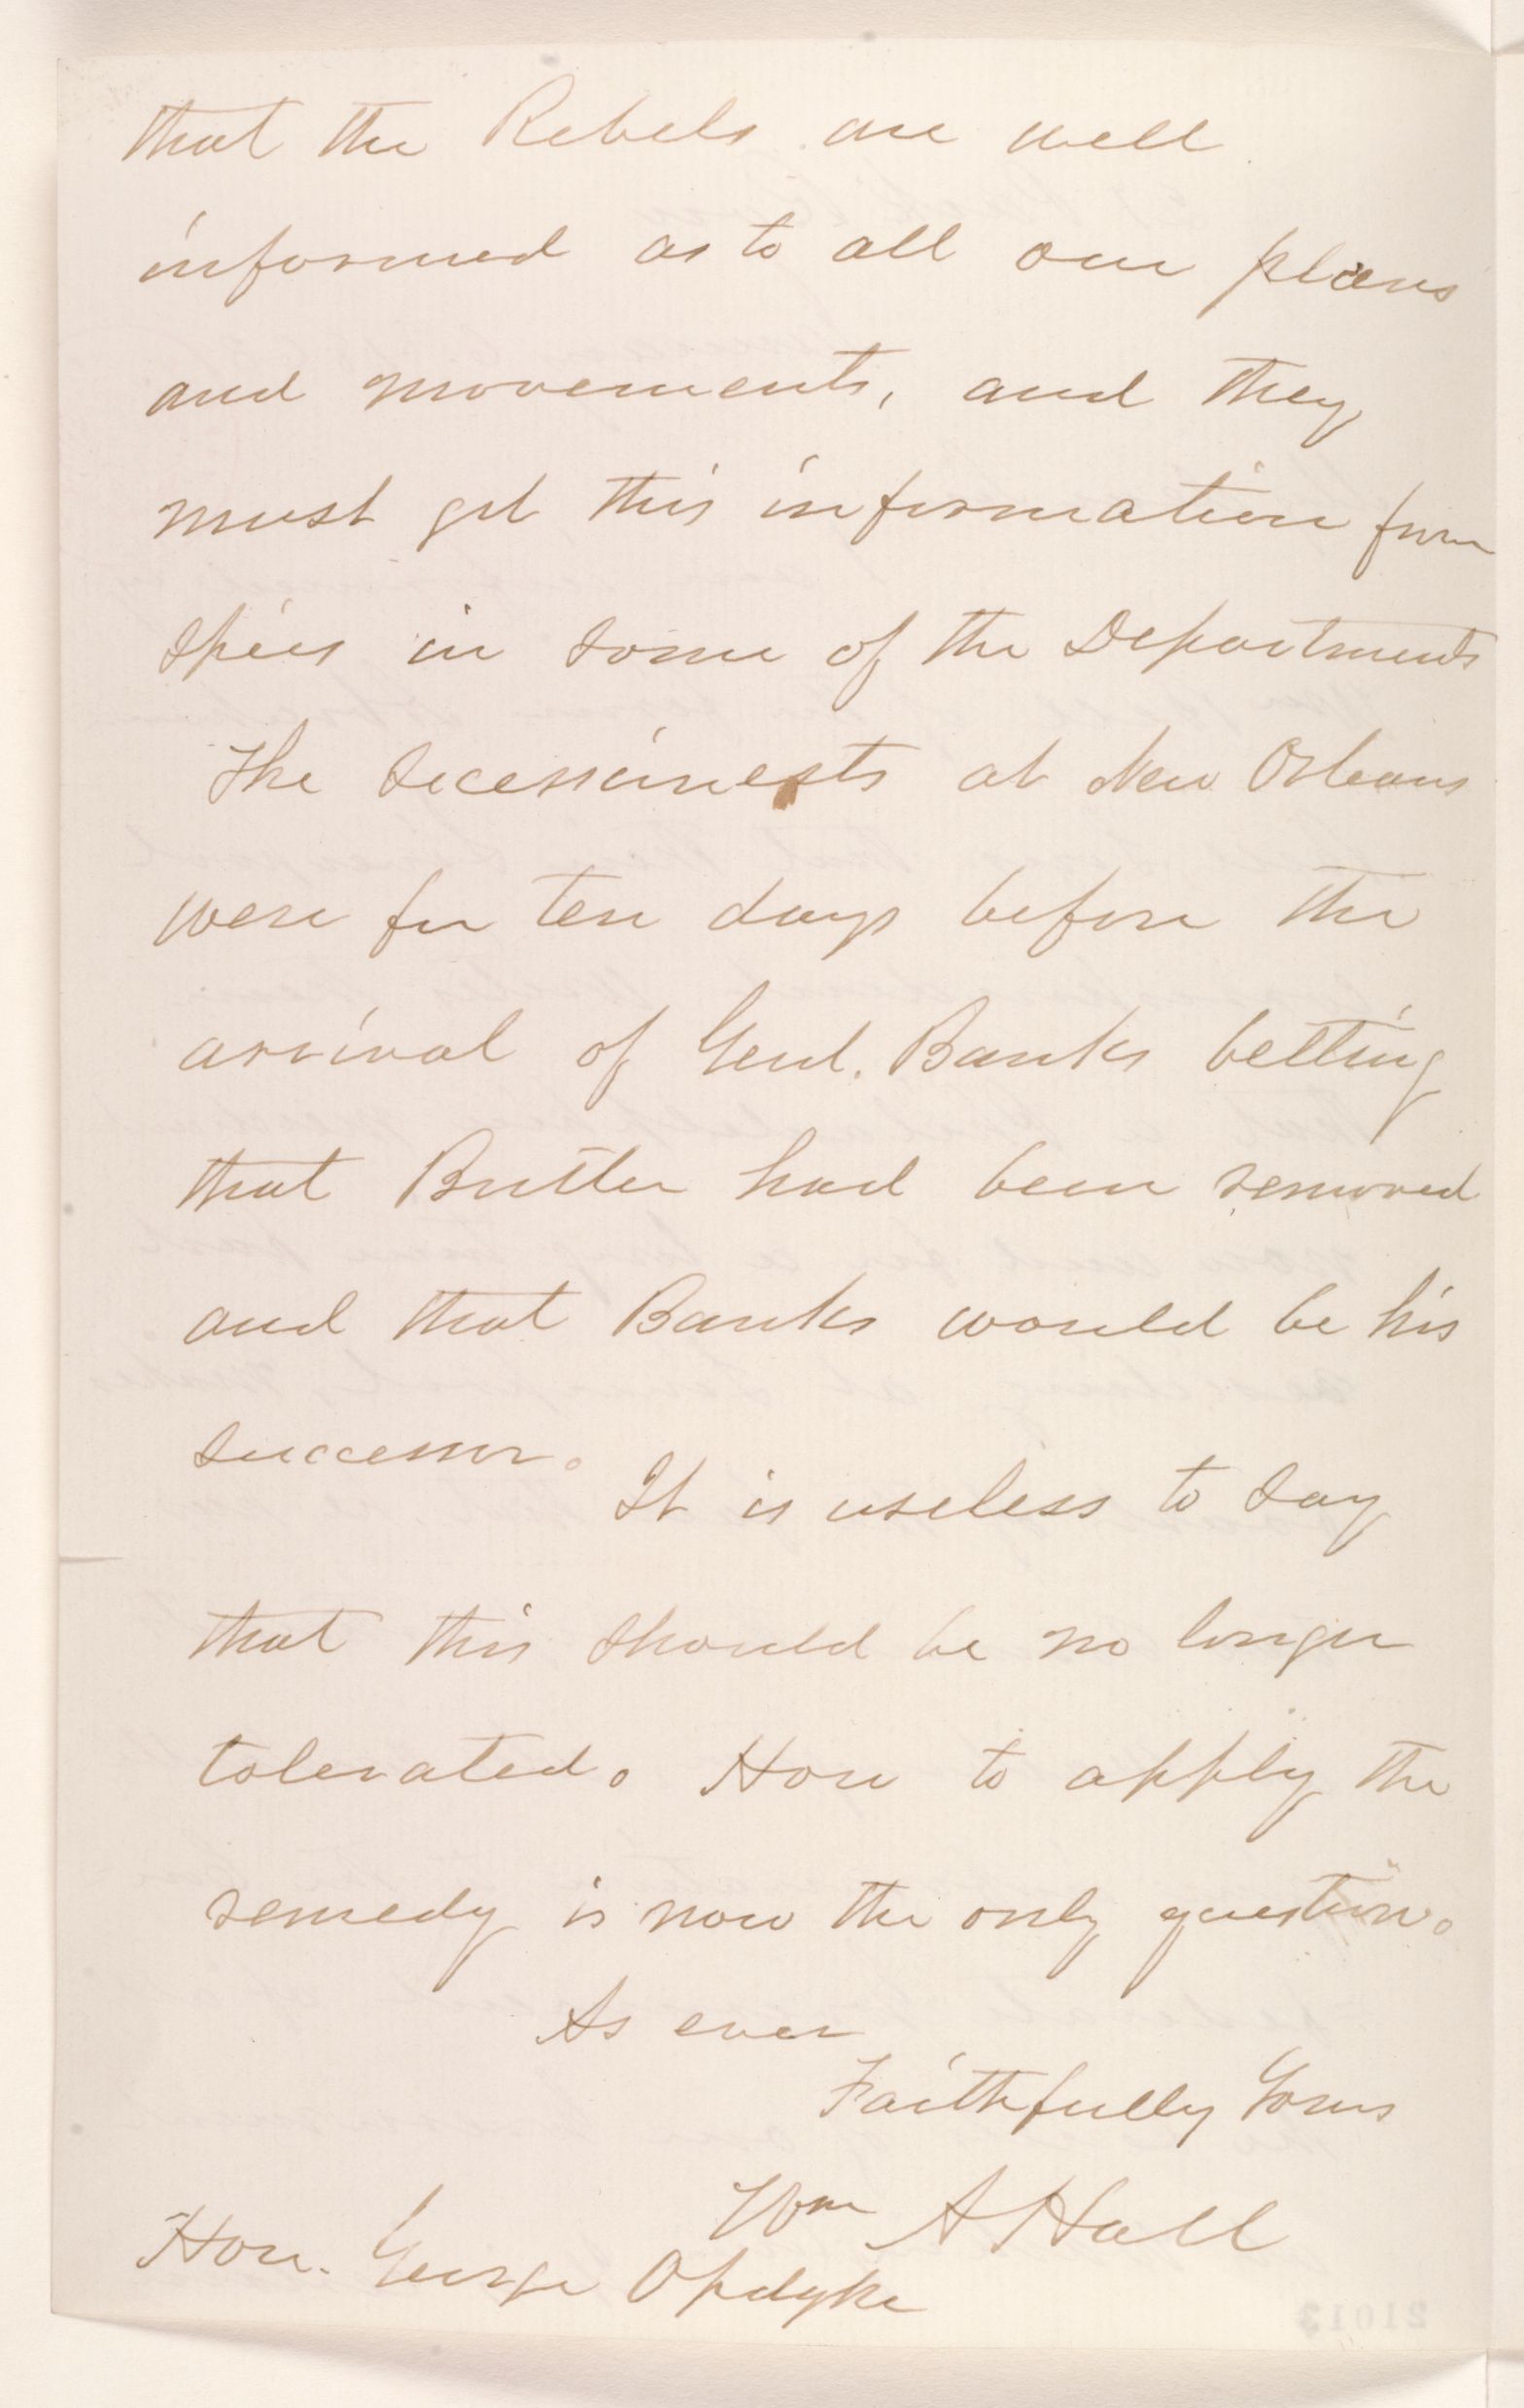 that the Rebels are well
informed as to all our plans
and movements, and they
must get this information from
spies in some of the Departments
The Secessionests at New Orleans
were for ten days before the
arrival of Genl. Banks betting
that Butler had been removed
and that Banks would be his
successor. It is useless to say
that this should be no longer
tolerated. How to apply the
remedy is now the only question.
As ever
Faithfully Yours
Wm A Hall
Hon. George Opdyke
21013